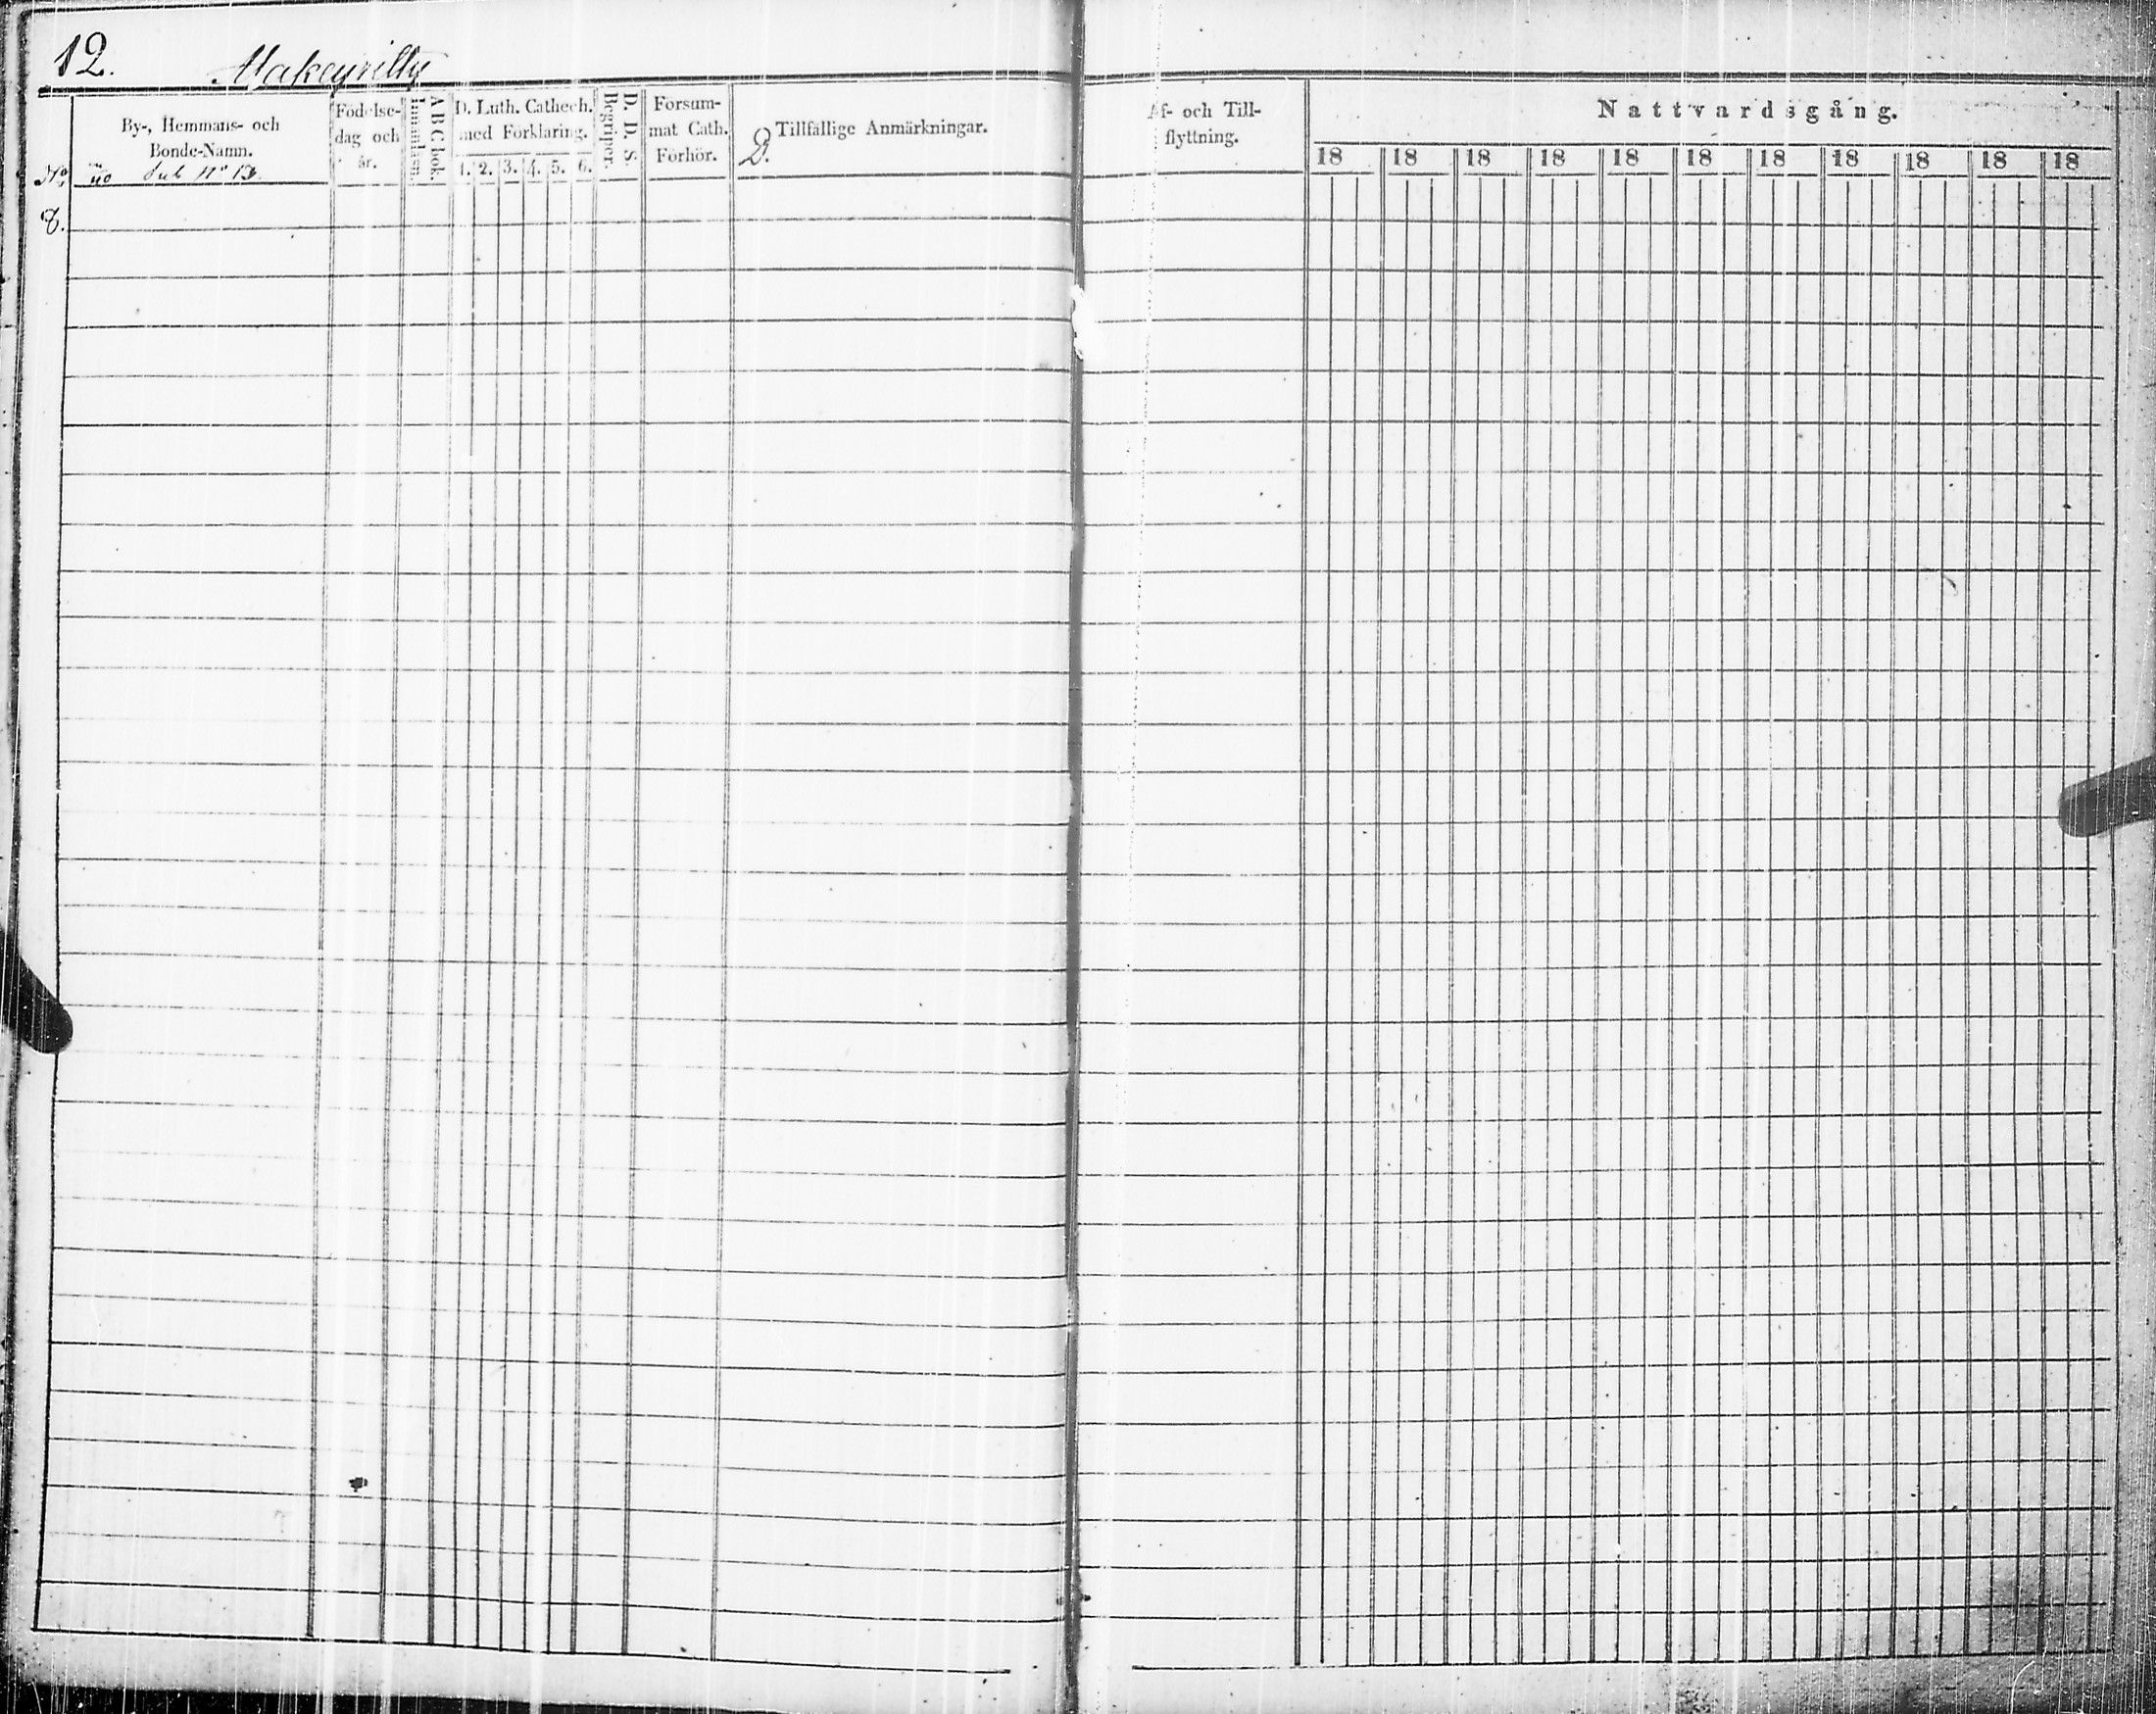 12.
By-, Hemmans- och
Bonde-Namn.
No
Sub No 13.
Födelse-
dag och
år.
Innanläsn.
A B C bok.
D. Luth. Cathech.
med Förklaring.
1. 2. 3. 4. 5. 6.
Begriper.
D. D. S.
Forsum-
mat Cath.
Förhör.
D.
Tillfällige Anmärkningar.
8.
Af- och Till-
flyttning.
Nattvardsgång.
18 18 18 18 18 18 18 18 18 18 18